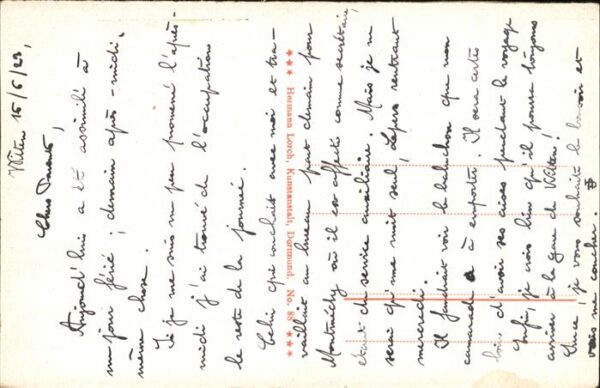 Witten 15/5/23,
Chers Parents,
Aujourd'hui a été assimilé à
un jour férié ; demain après-midi
même chose.
Si je me suis un peu promené l'après-
midi j'ai trouvé de l'occupation
le reste de la journée.
Celui qui couchait avec moi et tra-
vaillait au bureau part demain pour
Montmédy où il est affecté comme secrétaire,
étant du service auxiliaire. Mais je ne
serai qu'une nuit seul, Lepers rentrant
mercredi.
Il faudrait voir le baluchon que mon
camarade a à emporter. Il sera certes
loin d'avoir ses aises pendant le voyage
Enfin, je crois bien qu'il pourra toujours
arriver à la gare de Witten !
Sur ce, je vous souhaite le bonsoir et
vais me coucher.
*** Hermann Lorch, Kunstanstalt, Dortmund. No. 88 ***